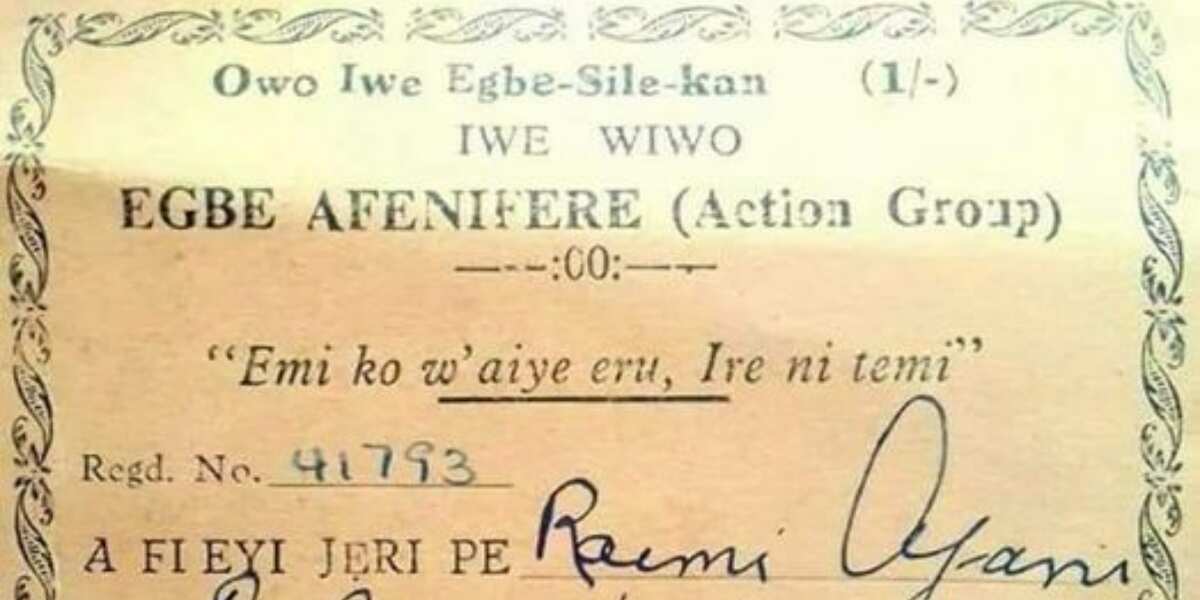 Owo Iwe Egbe-Sile-kan (1/-)
IWE WIWO
EGBE AFENIFERE (Action Group)
—--:00:—-—
"Emi ko w'aiye eru, Ire ni temi"
Regd. No. 41793
A FI EYI JẸRI PE Raimi Ayani